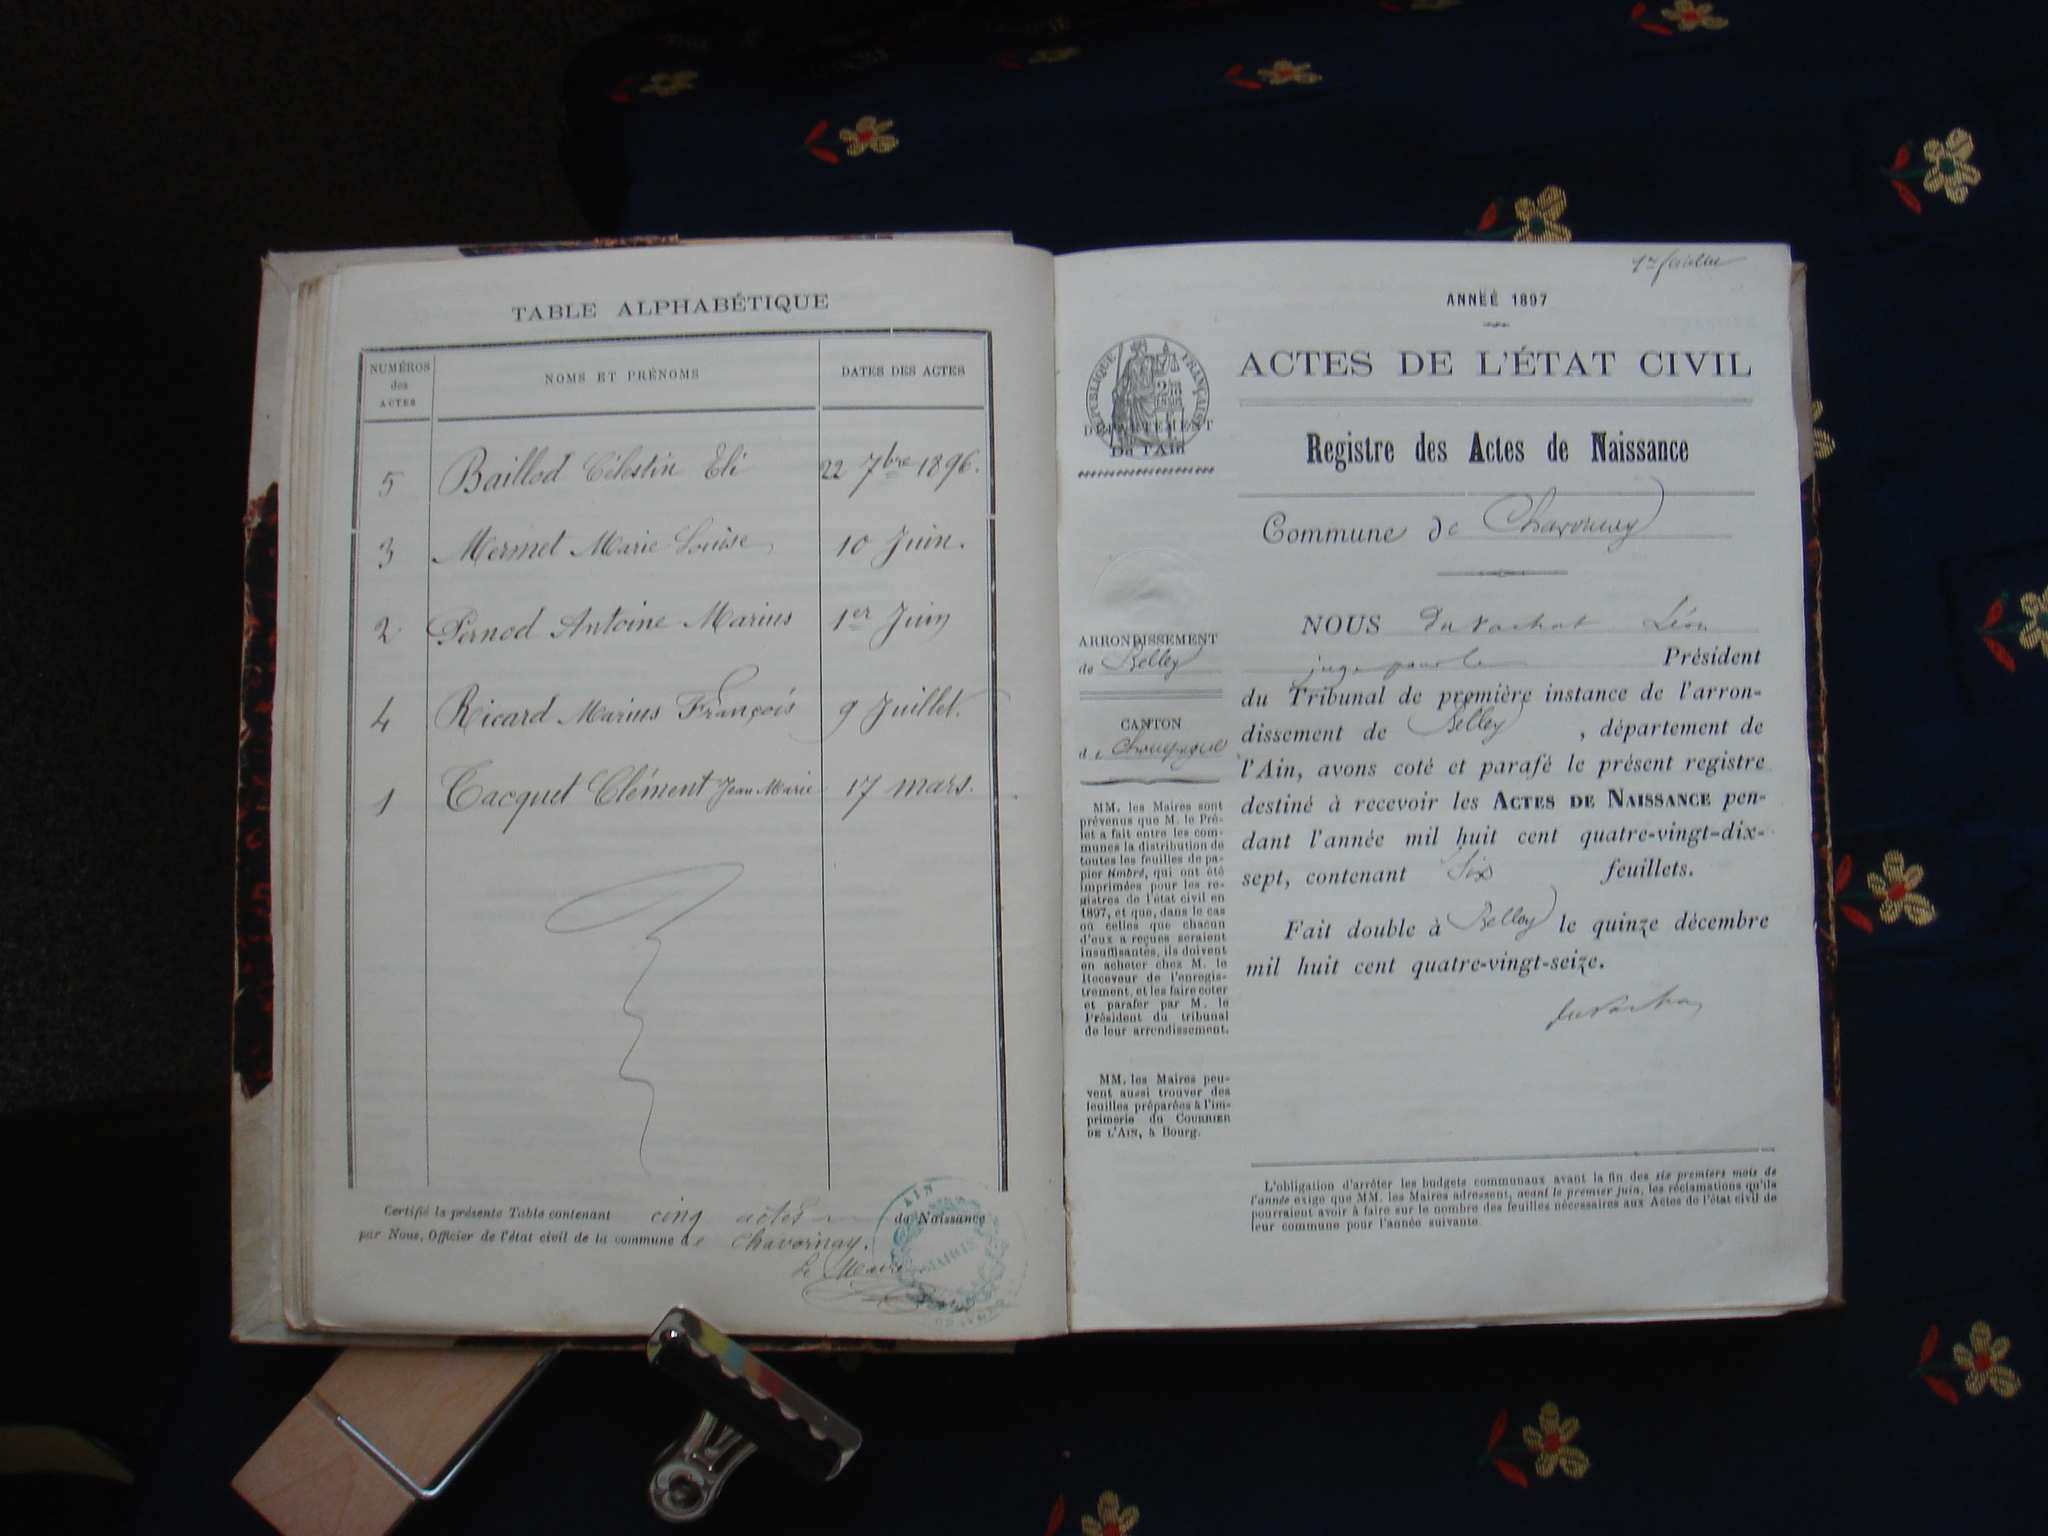 TABLE ALPHABÉTIQUE
NUMÉROS
des
ACTES
NOMS ET PRÉNOMS
DATES DES ACTES
5 Baillod Célestin Eli 22 7bre 1896.
3 Mermet Marie Louise 10 Juin.
2 Pernod Antoine Marius 1er Juin
4 Ricard Marius François 9 Juillet.
1 Tacquet Clément Jean Marie 17 mars.
Certifié la présente Table contenant cinq actes de Naissance
par Nous, Officier de l'état civil de la commune de Chavornay.
Le Maire
AIN
MAIRIE
1er feuillet
ANNÉE 1897
RÉPUBLIQUE FRANÇAISE
DÉPARTEMENT
De l'Ain
ACTES DE L'ÉTAT CIVIL
Registre des Actes de Naissance
Commune de Chavornay
ARRONDISSEMENT
de Belley
CANTON
de Champagne
MM. les Maires sont
prévenus que M. le Pré-
fet a fait entre les com-
munes la distribution de
toutes les feuilles de pa-
pier timbré, qui ont été
imprimées pour les re-
gistres de l'état civil en
1897, et que, dans le cas
où celles que chacun
d'eux a reçues seraient
insuffisantes, ils doivent
en acheter chez M. le
Receveur de l'enregis-
trement, et les faire coter
et parafer par M. le
Président du tribunal
de leur arrendissement.
MM. les Maires peu-
vent aussi trouver des
feuilles préparées à l'im-
primerie du COURRIER
DE L'AIN, à Bourg.
NOUS Du Vachat Léon
juge pour le Président
du Tribunal de première instance de l'arron-
dissement de Belley, département de
l'Ain, avons coté et parafé le présent registre
destiné à recevoir les ACTES DE NAISSANCE pen-
dant l'année mil huit cent quatre-vingt-dix-
sept, contenant Six feuillets.
Fait double à Belley le quinze décembre
mil huit cent quatre-vingt-seize.
L'obligation d'arrêter les budgets communaux avant la fin des six premiers mois de
l'année exige que MM. les Maires adressent, avant le premier juin, les réclamations qu'ils
pourraient avoir à faire sur le nombre des feuilles nécessaires aux Actes de l'état civil de
leur commune pour l'année suivante.